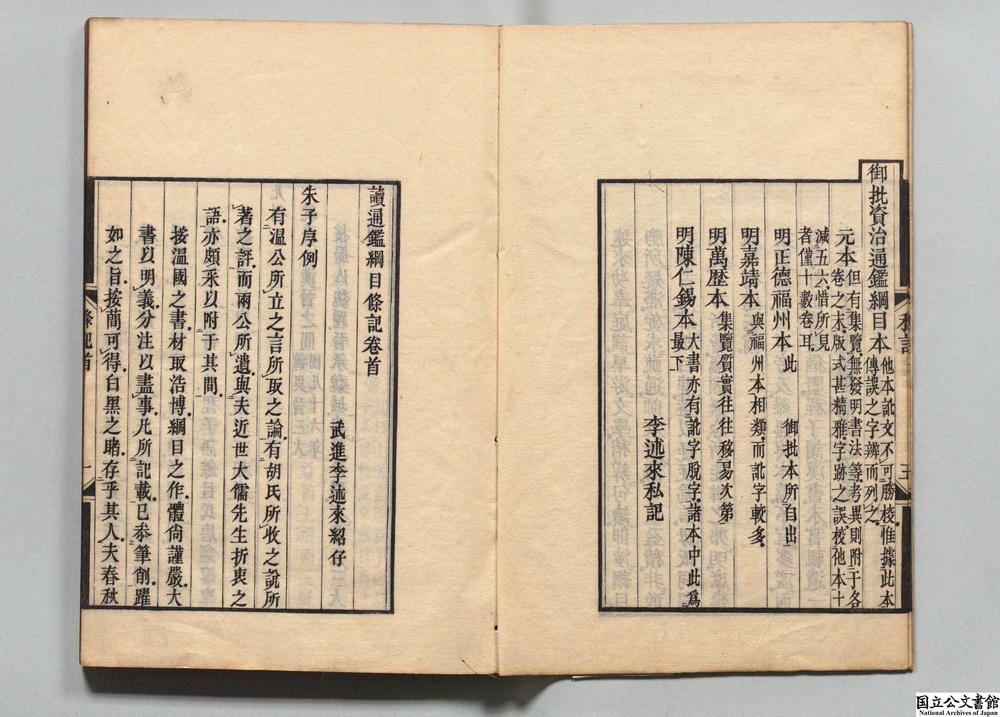 御批資治通鑑綱目本他本訛文不可勝校惟據此本
傳誤之字辨而列之
元本但有集覽無發明書法等考異則附于各
卷之末版式甚精雅字跡之誤校他本十
減五六惜所見
者僅十數卷耳
明正德福州本此 御批本所自出
明嘉靖本與福州本相類而訛字較多
明萬歷本集覽質實往往移易次第
明陳仁錫本大書亦有訛字脫字諸本中此爲
最下
李述來私記
五
讀通鑑綱目條記卷首
武進李述來紹仔
朱子序例
有溫公所立之言所取之論有胡氏所收之說所
著之評而兩公所遺與夫近世大儒先生折衷之
語亦頗采以附于其間
按溫國之書材取浩博綱目之作體尙謹嚴大
書以明義分注以盡事凡所記載已忝筆削躍
如之旨按簡可得白黑之睹存乎其人夫春秋
條記首
一
国立公文書館
National Archives of Japan